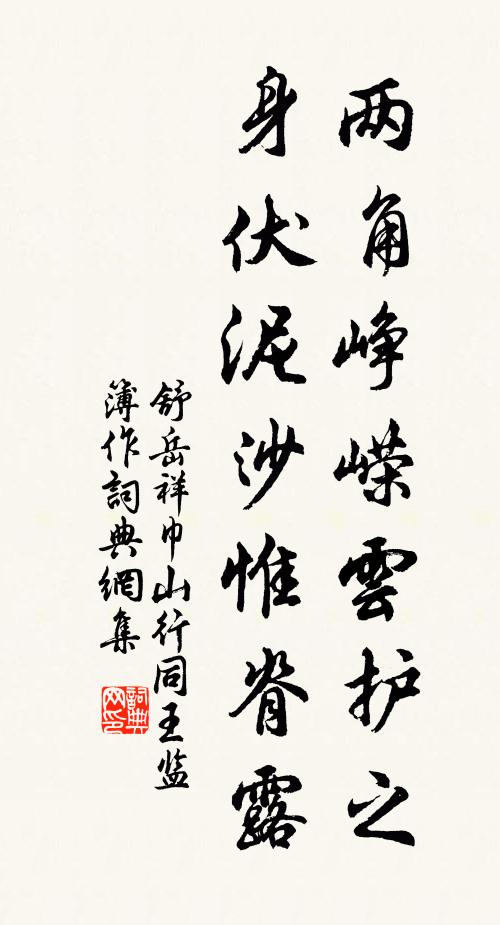 两角峥嵘雲护之
身伏泥沙惟脊露
舒岳祥巾山行同王监
簿作詞典網集
詞典网印